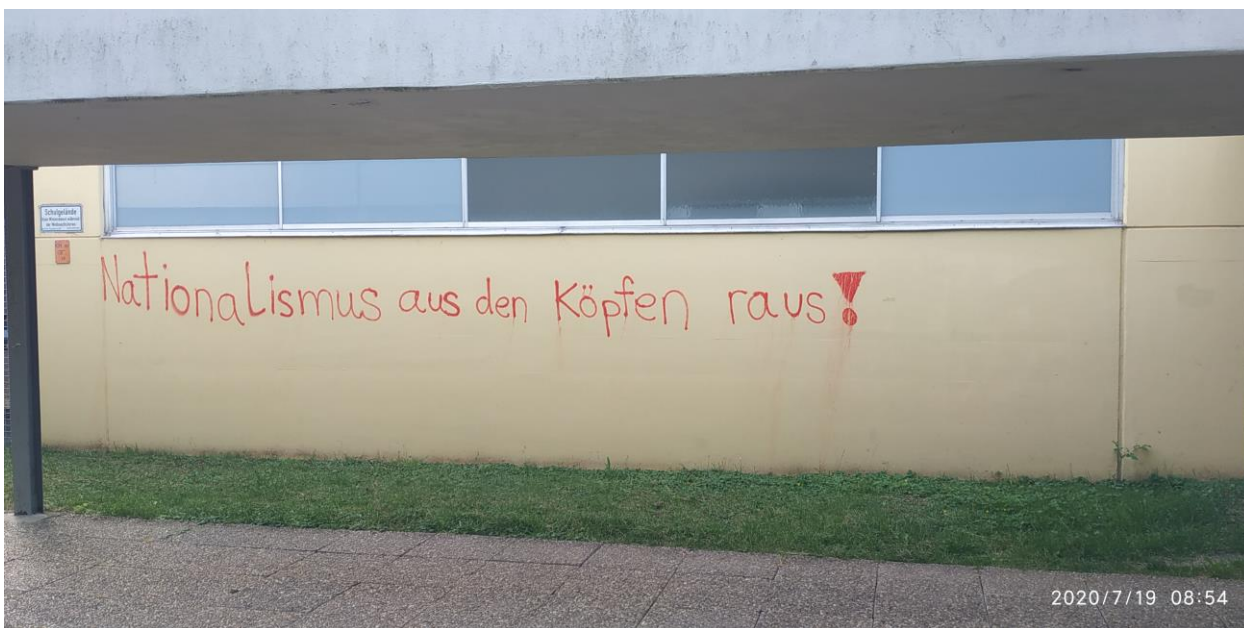 Schulgelände
Nationalismus aus den Köpfen raus!
2020/7/19 08:54